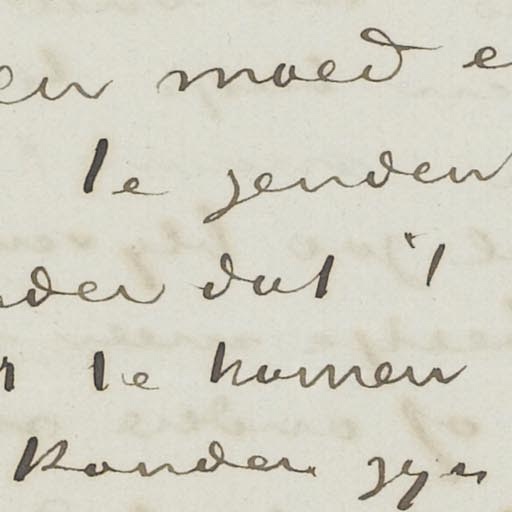 en moed e
te zenden
nder dat 't
r te komen
konden zyn